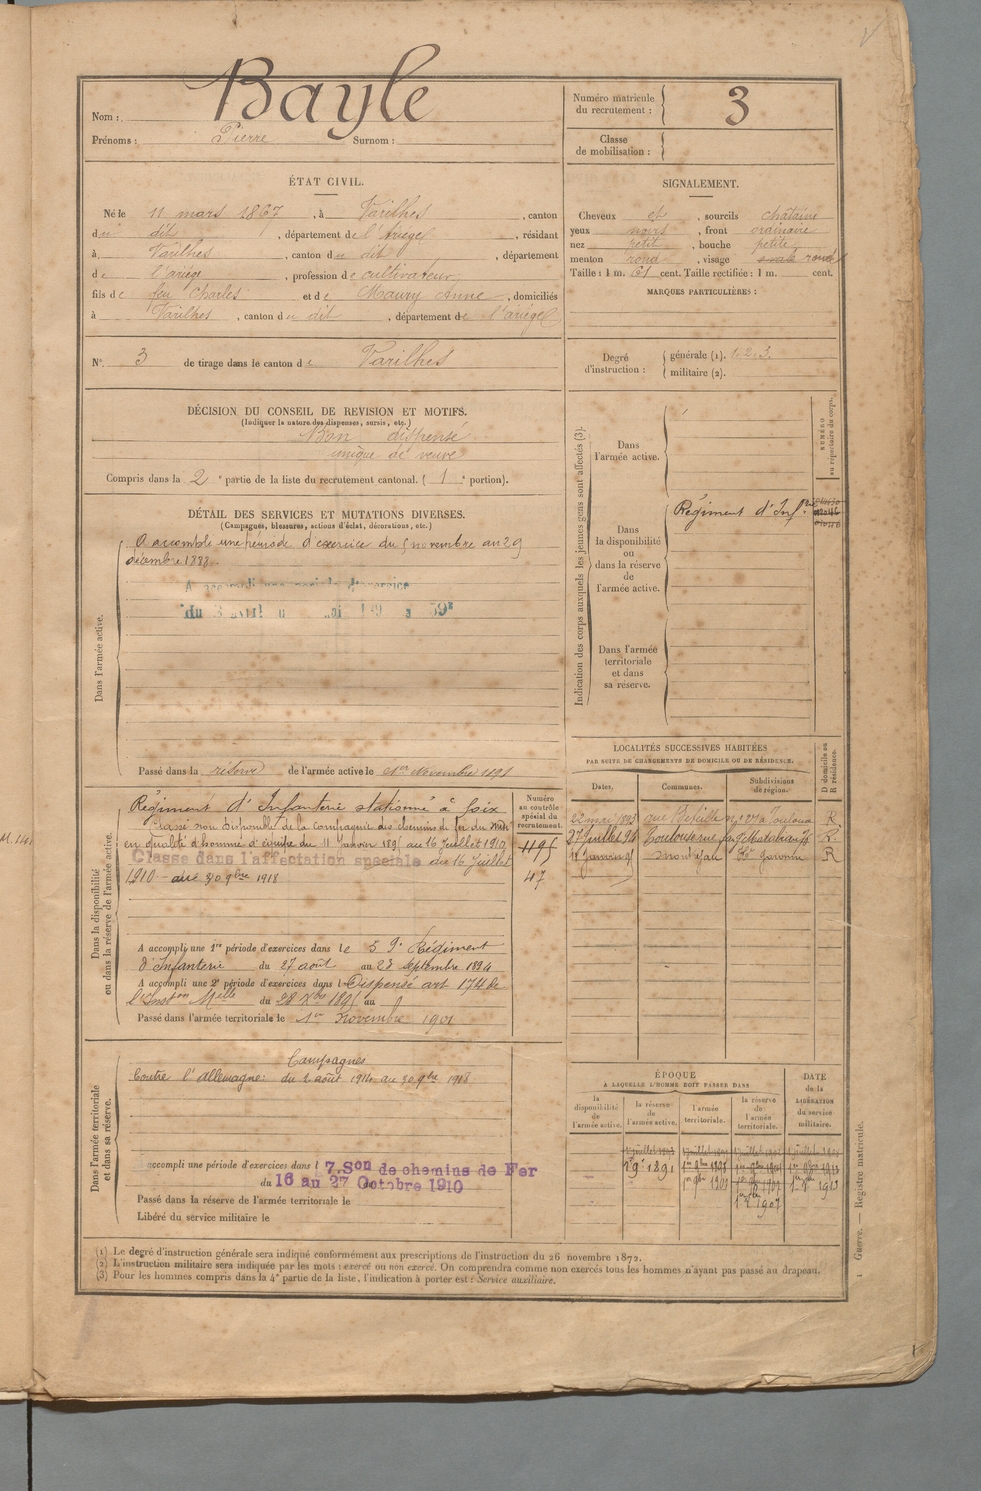 Bayle
Nom :
Prénoms : Pierre Surnom :
Numéro matricule du recrutement : 3
Classe de mobilisation :
ÉTAT CIVIL.
Né le 11 mars 1867, à Varilhes, canton
du dit, département de l'Ariège, résidant
à Varilhes, canton du dit, département
de l'ariège, profession de cultivateur,
fils de feu Charles et de Maury Anne, domiciliés
à Varilhes, canton du dit, département de l'ariège
N° 3 de tirage dans le canton de Varilhes
SIGNALEMENT.
Cheveux et, sourcils châtains
yeux noirs, front ordinaire
nez petit, bouche petite,
menton rond, visage ovale rond
Taille : 1 m. 61 cent. Taille rectifiée : 1 m. cent.
MARQUES PARTICULIÈRES :
Degré d'instruction :
générale (1). 1.2.3.
militaire (2).
DÉCISION DU CONSEIL DE REVISION ET MOTIFS.
(Indiquer la nature des dispenses, sursis, etc.)
Bon dispensé
unique de veuve
Compris dans la 2e partie de la liste du recrutement cantonal. ( 1e portion).
DÉTAIL DES SERVICES ET MUTATIONS DIVERSES.
(Campagnes, blessures, actions d'éclat, décorations, etc.)
Dans l'armée active.
A accompli une période d'exercice du 5 novembre au 29
décembre 1888.
Passé dans la réserve de l'armée active le Novembre 1891
Indication des corps auxquels les jeunes gens sont affectés (3).
NUMÉRO au répertoire du corps.
Dans l'armée active.
Dans la disponibilité ou dans la réserve de l'armée active.
Régiment d'Inf.rie
Dans l'armée territoriale et dans sa réserve.
Dans la disponibilité ou dans la réserve de l'armée active.
Numéro au contrôle spécial du recrutement.
Régiment d'Infanterie stationné à Foix
Classé non disponible de la compagnie des chemins de fer du Midi
en qualité d'homme d'équipe du 11 Janvier 1895 au 16 Juillet 1910
Classé dans l'affectation spéciale du 16 Juillet
1910 au 30 9bre 1918
1195
47
A accompli une 1re période d'exercices dans le 59e Régiment
d'Infanterie du 27 août au 23 septembre 1894
A accompli une 2e période d'exercices dans l Dispensé art 174 de
l'Inston Melle du 28 Xbre 1895 au
Passé dans l'armée territoriale le 1er Novembre 1901
LOCALITÉS SUCCESSIVES HABITÉES
PAR SUITE DE CHANGEMENTS DE DOMICILE OU DE RÉSIDENCE.
Dates. Communes. Subdivisions de région. D domicile ou R résidence.
22 mai 1893 Toulouse R
27 Juillet 94 Toulouse rue R.
18 Janvier 95 Garonne R
Dans l'armée territoriale et dans sa réserve.
Campagnes
Contre l'Allemagne : du 2 août 1914 au 30 9bre 1918
accompli une période d'exercices dans l 7.Son de chemins de Fer
du 16 au 27 Octobre 1910
Passé dans la réserve de l'armée territoriale le
Libéré du service militaire le
ÉPOQUE
A LAQUELLE L'HOMME DOIT PASSER DANS
la disponibilité de l'armée active.
la réserve de l'armée active.
l'armée territoriale.
la réserve de l'armée territoriale.
DATE de la LIBÉRATION du service militaire.
(1) Le degré d'instruction générale sera indiqué conformément aux prescriptions de l'instruction du 26 novembre 1872.
(2) L'instruction militaire sera indiquée par les mots : exercé ou non exercé. On comprendra comme non exercés tous les hommes n'ayant pas passé au drapeau.
(3) Pour les hommes compris dans la 4e partie de la liste, l'indication à porter est : Service auxiliaire.
Guerre. — Registre matricule.